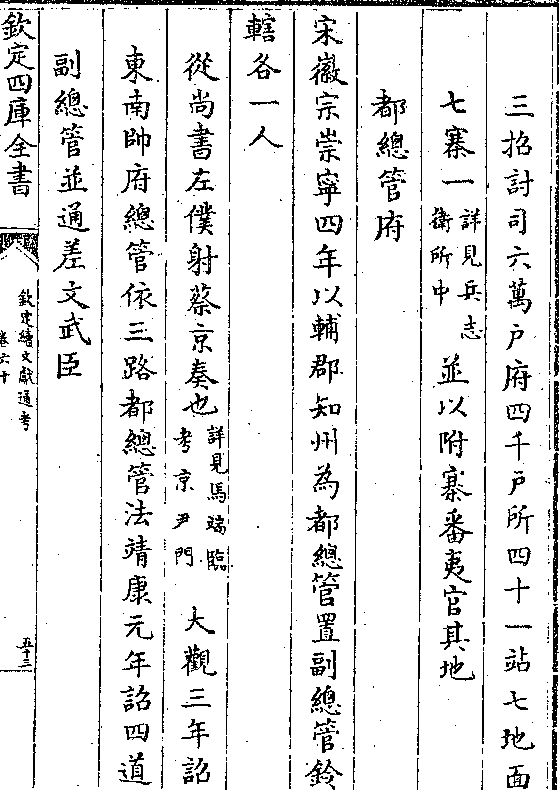 三招討司六萬户府四千户所四十一站七地面
七寨一詳見兵志衞所中並以附寨番夷官其地
都總管府
宋徽宗崇寧四年以輔郡知州為都總管置副總管鈐
轄各一人
從尚書左僕射蔡京奏也詳見馬端臨考京尹門大觀三年詔
東南帥府總管依三路都總管法靖康元年詔四道
副總管並通差文武臣
欽定四庫全書
欽定續文獻通考
卷六十
五十三